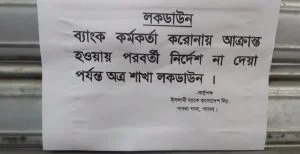 লকডাউন
ব্যাংক কর্মকর্তা করোনায় আক্রান্ত
হওয়ায় পরবর্তী নির্দেশ না দেয়া
পর্যন্ত অত্র শাখা লকডাউন ।
কর্তৃপক্ষ
ইসলামী ব্যাংক বাংলাদেশ লিঃ
পাবনা শাখা, পাবনা।